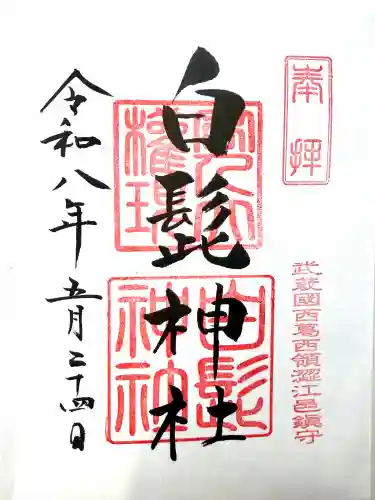 奉拝
武蔵國西葛西領澀江邑鎮守
白髭神社
白髭神社
令和八年五月二十四日